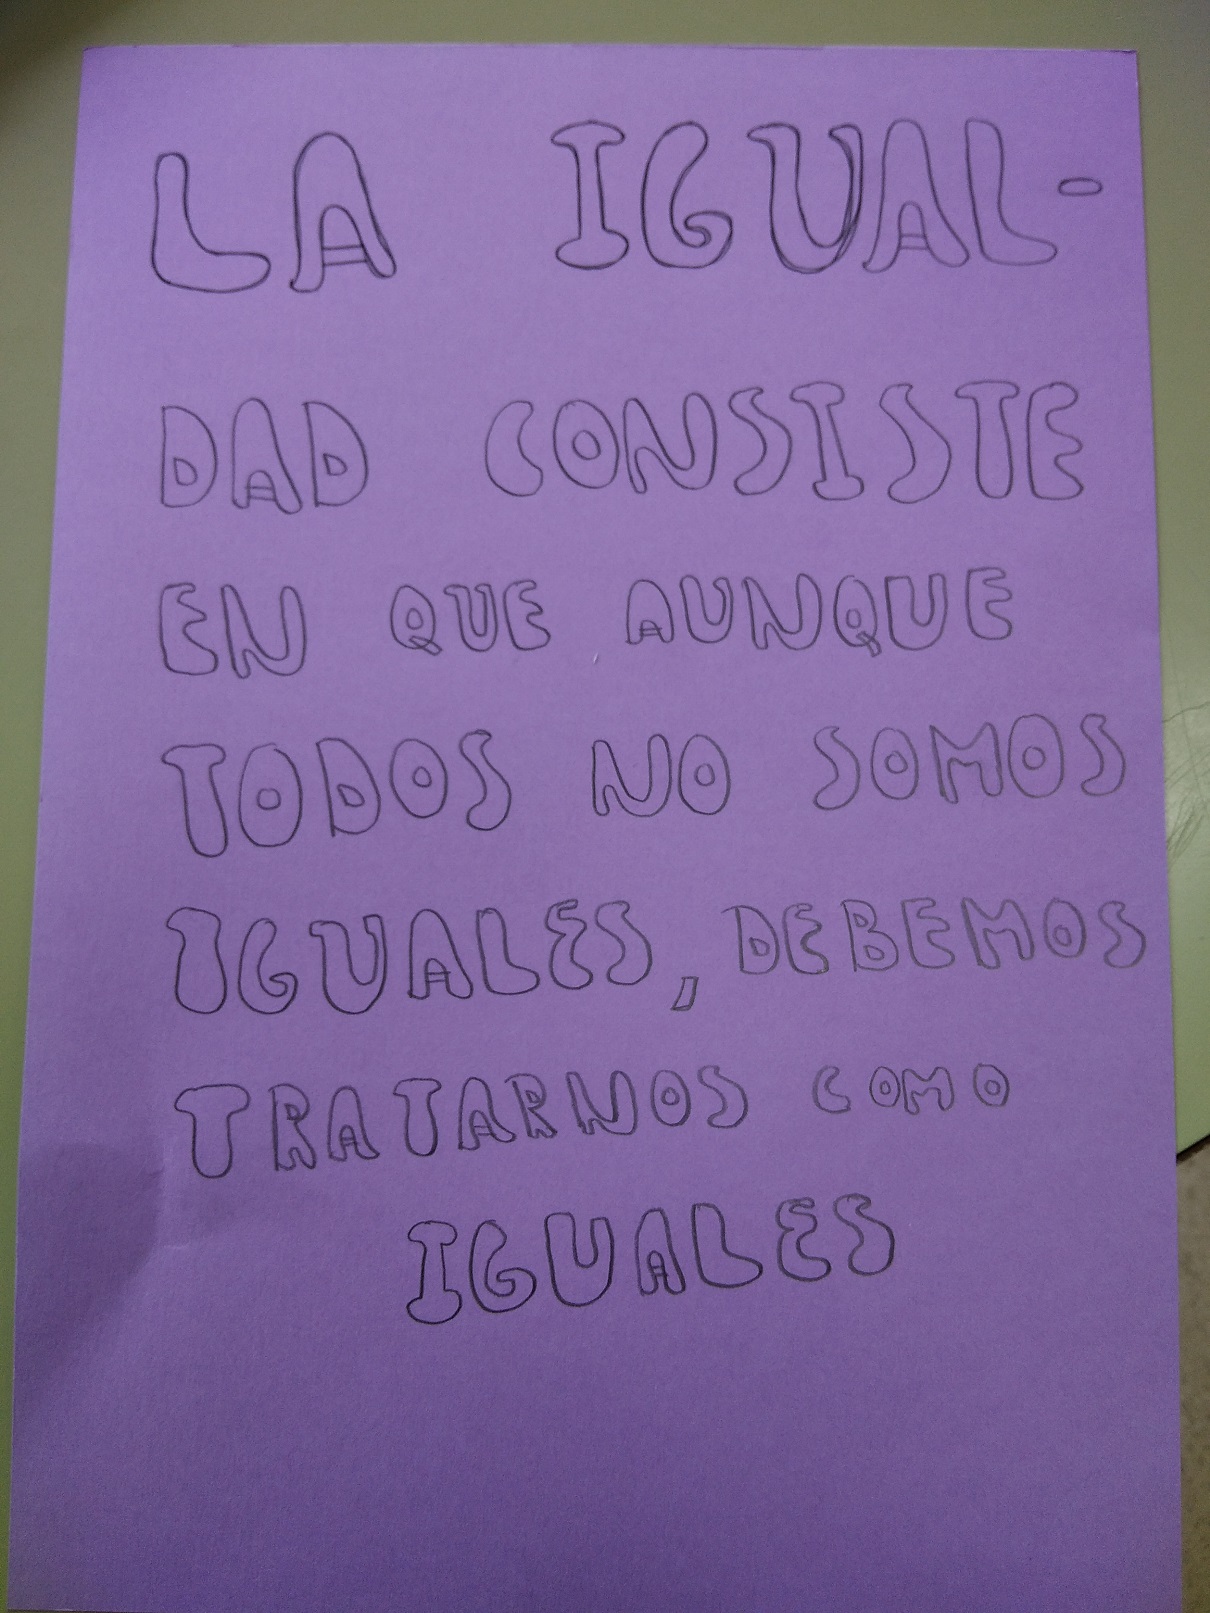 LA IGUAL-
DAD CONSISTE
EN QUE AUNQUE
TODOS NO SOMOS
IGUALES, DEBEMOS
TRATARNOS COMO
IGUALES